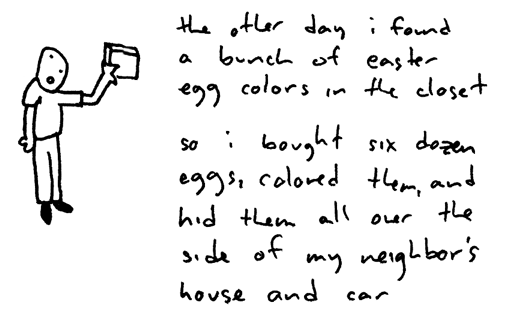 the other day i found
a bunch of easter
egg colors in the closet
so i bought six dozen
eggs, colored them, and
hid them all over the
side of my neighbor's
house and car